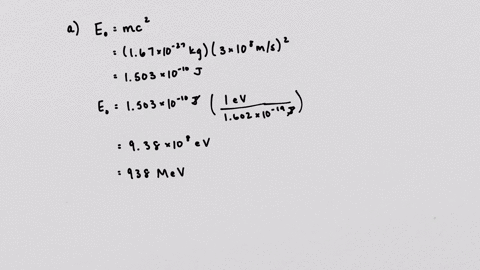 a) E₀ = mc²
= (1.67×10⁻²⁷ kg)(3×10⁸ m/s)²
= 1.503×10⁻¹⁰ J
E₀ = 1.503×10⁻¹⁰ J (1 eV / 1.602×10⁻¹⁹ J)
= 9.38×10⁸ eV
= 938 MeV